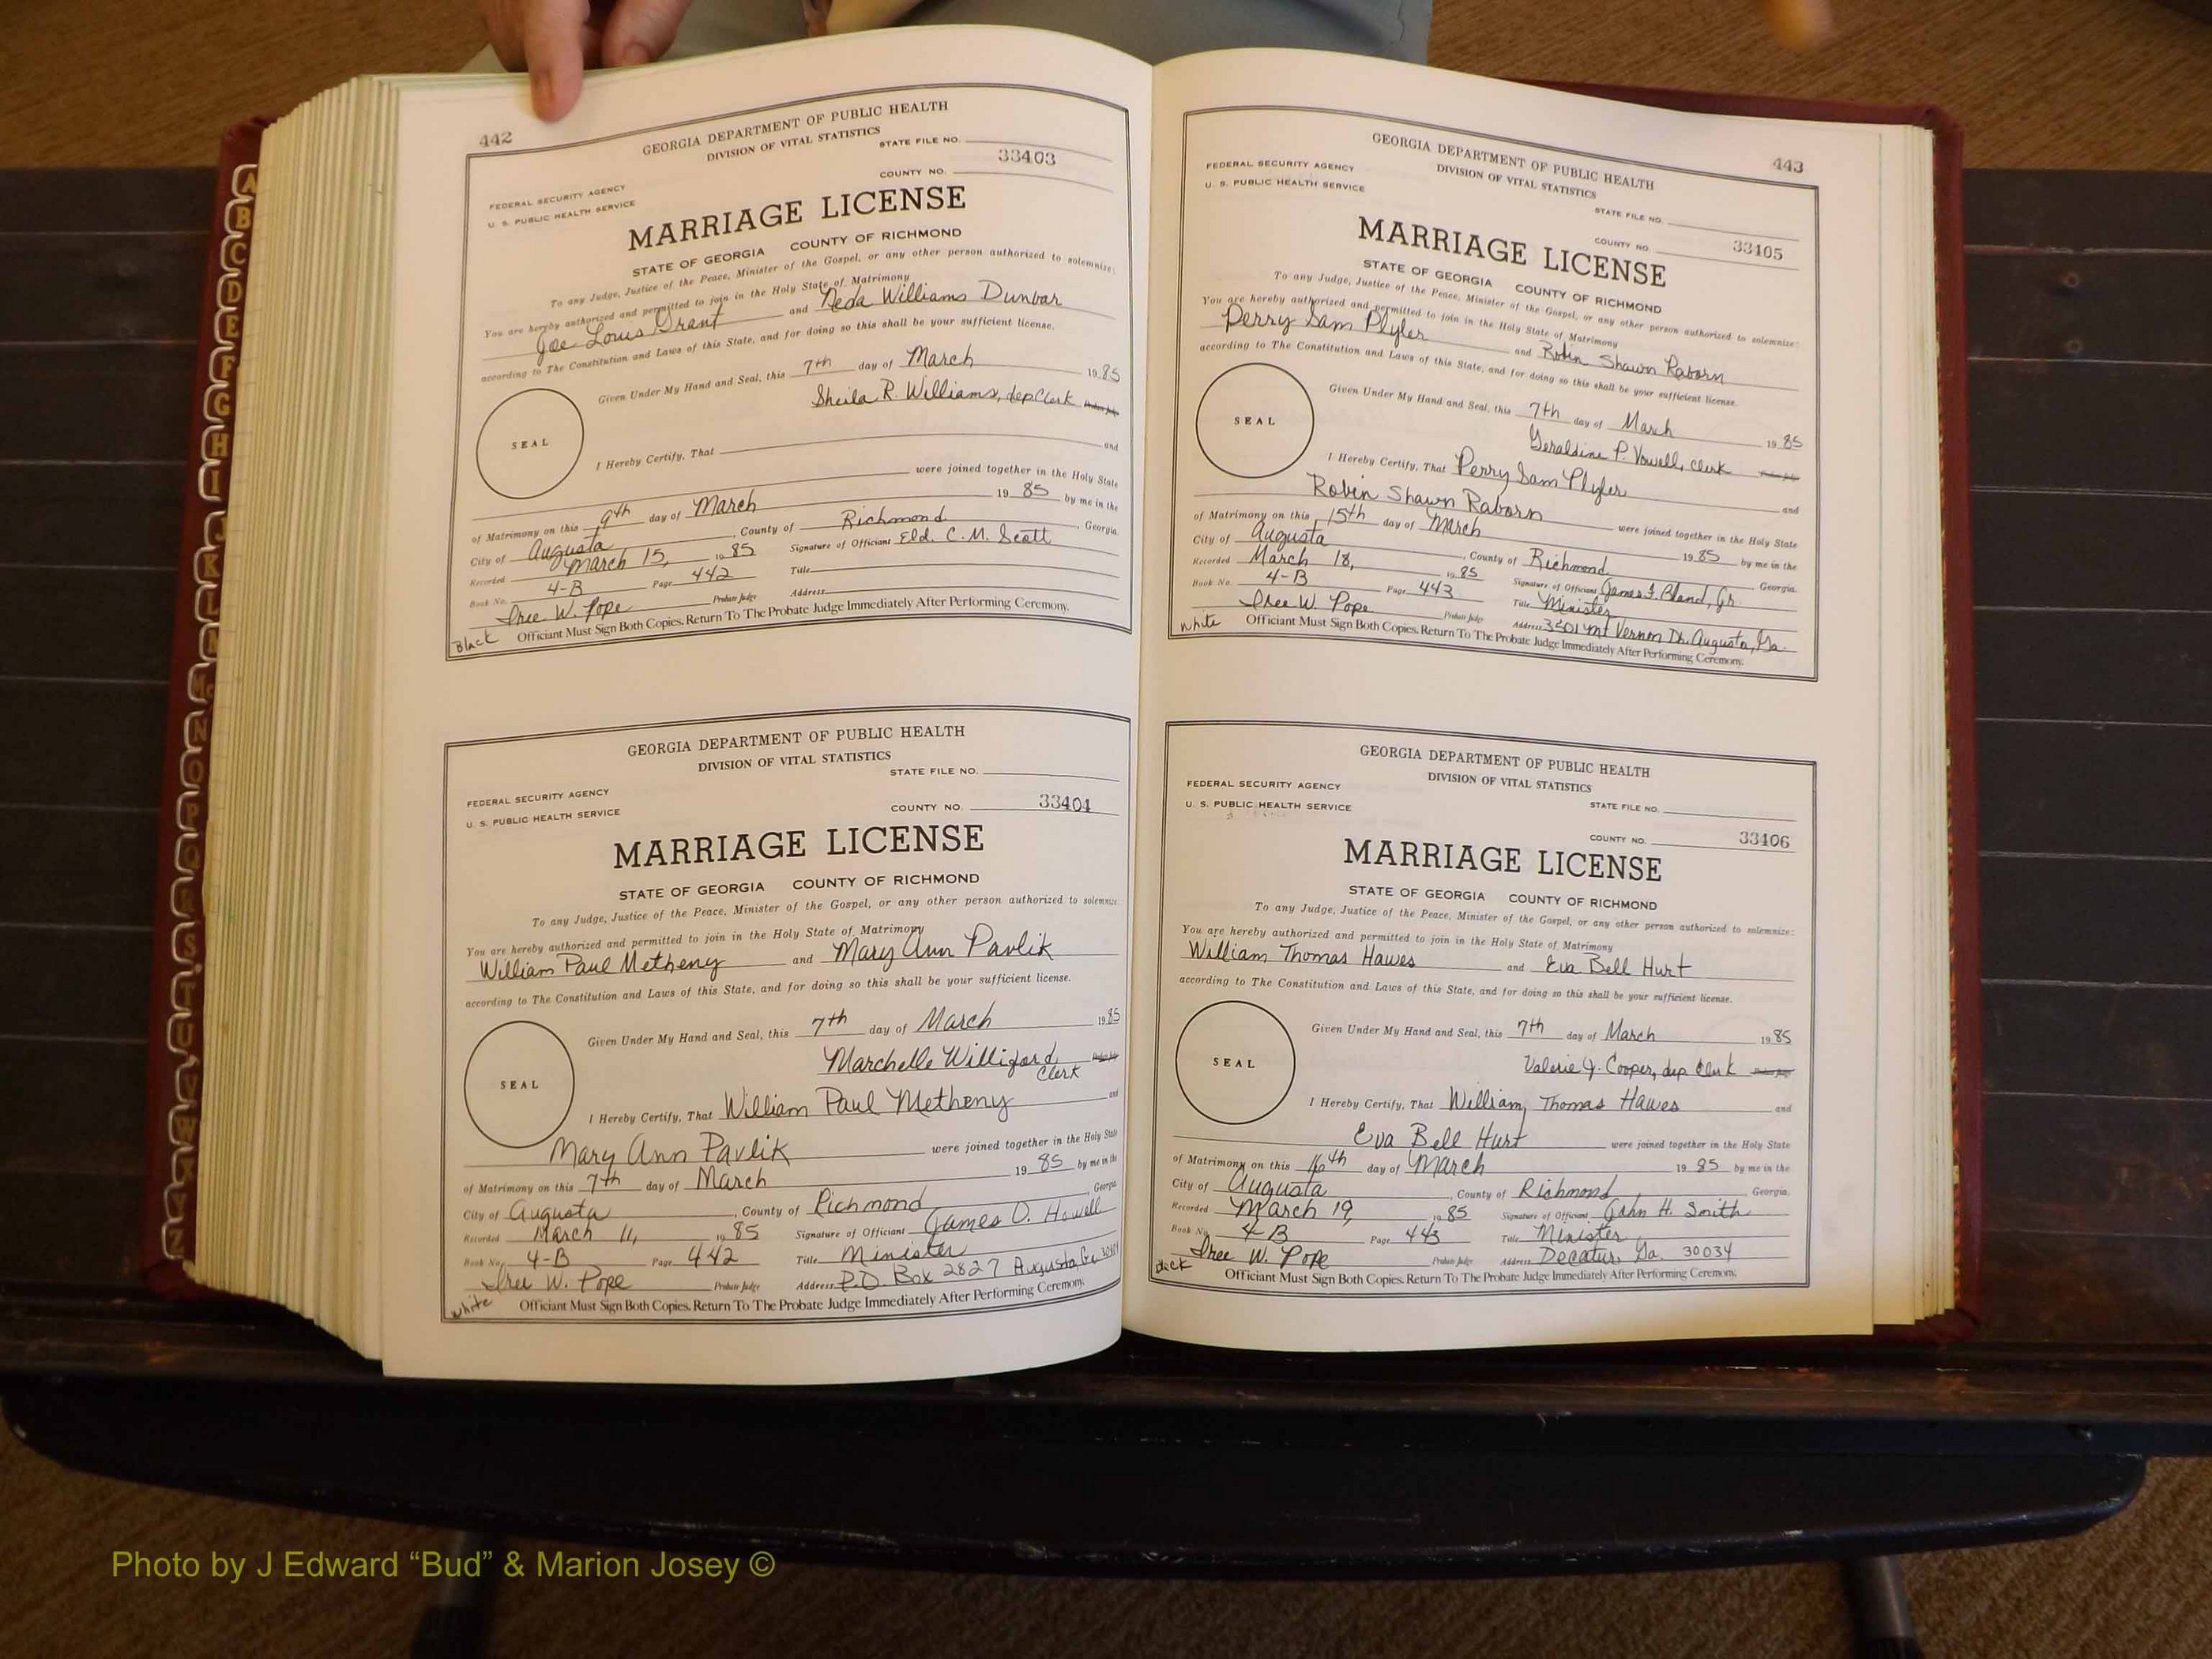 A
B
C
D
E
F
G
H
I
J
K
L
M
Mc
N
O
P
Q
R
S
T
U
V
W
X
Y
Z
442
GEORGIA DEPARTMENT OF PUBLIC HEALTH
DIVISION OF VITAL STATISTICS
STATE FILE NO.
FEDERAL SECURITY AGENCY
U. S. PUBLIC HEALTH SERVICE
COUNTY NO. 33403
MARRIAGE LICENSE
STATE OF GEORGIA COUNTY OF RICHMOND
To any Judge, Justice of the Peace, Minister of the Gospel, or any other person authorized to solemnize:
You are hereby authorized and permitted to join in the Holy State of Matrimony
Joe Louis Grant and Neda Williams Dunbar
according to The Constitution and Laws of this State, and for doing so this shall be your sufficient license.
Given Under My Hand and Seal, this 7th day of March 1985
Sheila R. Williams, dep Clerk Probate Judge
SEAL
I Hereby Certify, That and
were joined together in the Holy State
of Matrimony on this 9th day of March 19 85 by me in the
City of Augusta, County of Richmond, Georgia.
Recorded March 15, 1985 Signature of Officiant Eld. C. M. Scott
Book No. 4-B Page 442 Title
Iree W. Pope Probate Judge Address
Black Officiant Must Sign Both Copies. Return To The Probate Judge Immediately After Performing Ceremony.
GEORGIA DEPARTMENT OF PUBLIC HEALTH
DIVISION OF VITAL STATISTICS
STATE FILE NO.
FEDERAL SECURITY AGENCY
U. S. PUBLIC HEALTH SERVICE
COUNTY NO. 33404
MARRIAGE LICENSE
STATE OF GEORGIA COUNTY OF RICHMOND
To any Judge, Justice of the Peace, Minister of the Gospel, or any other person authorized to solemnize
You are hereby authorized and permitted to join in the Holy State of Matrimony
William Paul Metheny and Mary Ann Pavlik
according to The Constitution and Laws of this State, and for doing so this shall be your sufficient license.
Given Under My Hand and Seal, this 7th day of March 1985
Marchelle Willigard, Clerk Probate Judge
SEAL
I Hereby Certify, That William Paul Metheny and
Mary Ann Pavlik were joined together in the Holy State
of Matrimony on this 7th day of March 19 85 by me in the
City of Augusta, County of Richmond, Georgia
Recorded March 11, 1985 Signature of Officiant James O. Howell
Book No. 4-B Page 442 Title Minister
Iree W. Pope Probate Judge Address P.O. Box 2827 Augusta, Ga
White Officiant Must Sign Both Copies. Return To The Probate Judge Immediately After Performing Ceremony.
443
GEORGIA DEPARTMENT OF PUBLIC HEALTH
DIVISION OF VITAL STATISTICS
FEDERAL SECURITY AGENCY
U. S. PUBLIC HEALTH SERVICE
STATE FILE NO.
COUNTY NO. 33405
MARRIAGE LICENSE
STATE OF GEORGIA COUNTY OF RICHMOND
To any Judge, Justice of the Peace, Minister of the Gospel, or any other person authorized to solemnize:
You are hereby authorized and permitted to join in the Holy State of Matrimony
Perry Sam Plyler and Robin Shawn Raborn
according to The Constitution and Laws of this State, and for doing so this shall be your sufficient license.
Given Under My Hand and Seal, this 7th day of March 1985
Geraldine P. Vowell, clerk Probate Judge
SEAL
I Hereby Certify, That Perry Sam Plyler and
Robin Shawn Raborn were joined together in the Holy State
of Matrimony on this 15th day of March 1985 by me in the
City of Augusta, County of Richmond, Georgia.
Recorded March 18, 1985 Signature of Officiant James F. Bland, Jr.
Book No. 4-B Page 443 Title Minister
Iree W. Pope Probate Judge Address 3501 Mt Vernon Dr. Augusta, Ga.
White Officiant Must Sign Both Copies. Return To The Probate Judge Immediately After Performing Ceremony.
GEORGIA DEPARTMENT OF PUBLIC HEALTH
DIVISION OF VITAL STATISTICS
FEDERAL SECURITY AGENCY
U. S. PUBLIC HEALTH SERVICE
STATE FILE NO.
COUNTY NO. 33406
MARRIAGE LICENSE
STATE OF GEORGIA COUNTY OF RICHMOND
To any Judge, Justice of the Peace, Minister of the Gospel, or any other person authorized to solemnize:
You are hereby authorized and permitted to join in the Holy State of Matrimony
William Thomas Hawes and Eva Bell Hurt
according to The Constitution and Laws of this State, and for doing so this shall be your sufficient license.
Given Under My Hand and Seal, this 7th day of March 1985
Valerie J. Cooper, dep Clerk Probate Judge
SEAL
I Hereby Certify, That William Thomas Hawes and
Eva Bell Hurt were joined together in the Holy State
of Matrimony on this 16th day of March 1985 by me in the
City of Augusta, County of Richmond, Georgia.
Recorded March 19, 1985 Signature of Officiant John H. Smith
Book No. 4-B Page 443 Title Minister
Iree W. Pope Probate Judge Address Decatur, Ga. 30034
Black Officiant Must Sign Both Copies. Return To The Probate Judge Immediately After Performing Ceremony.
Photo by J Edward “Bud” & Marion Josey ©